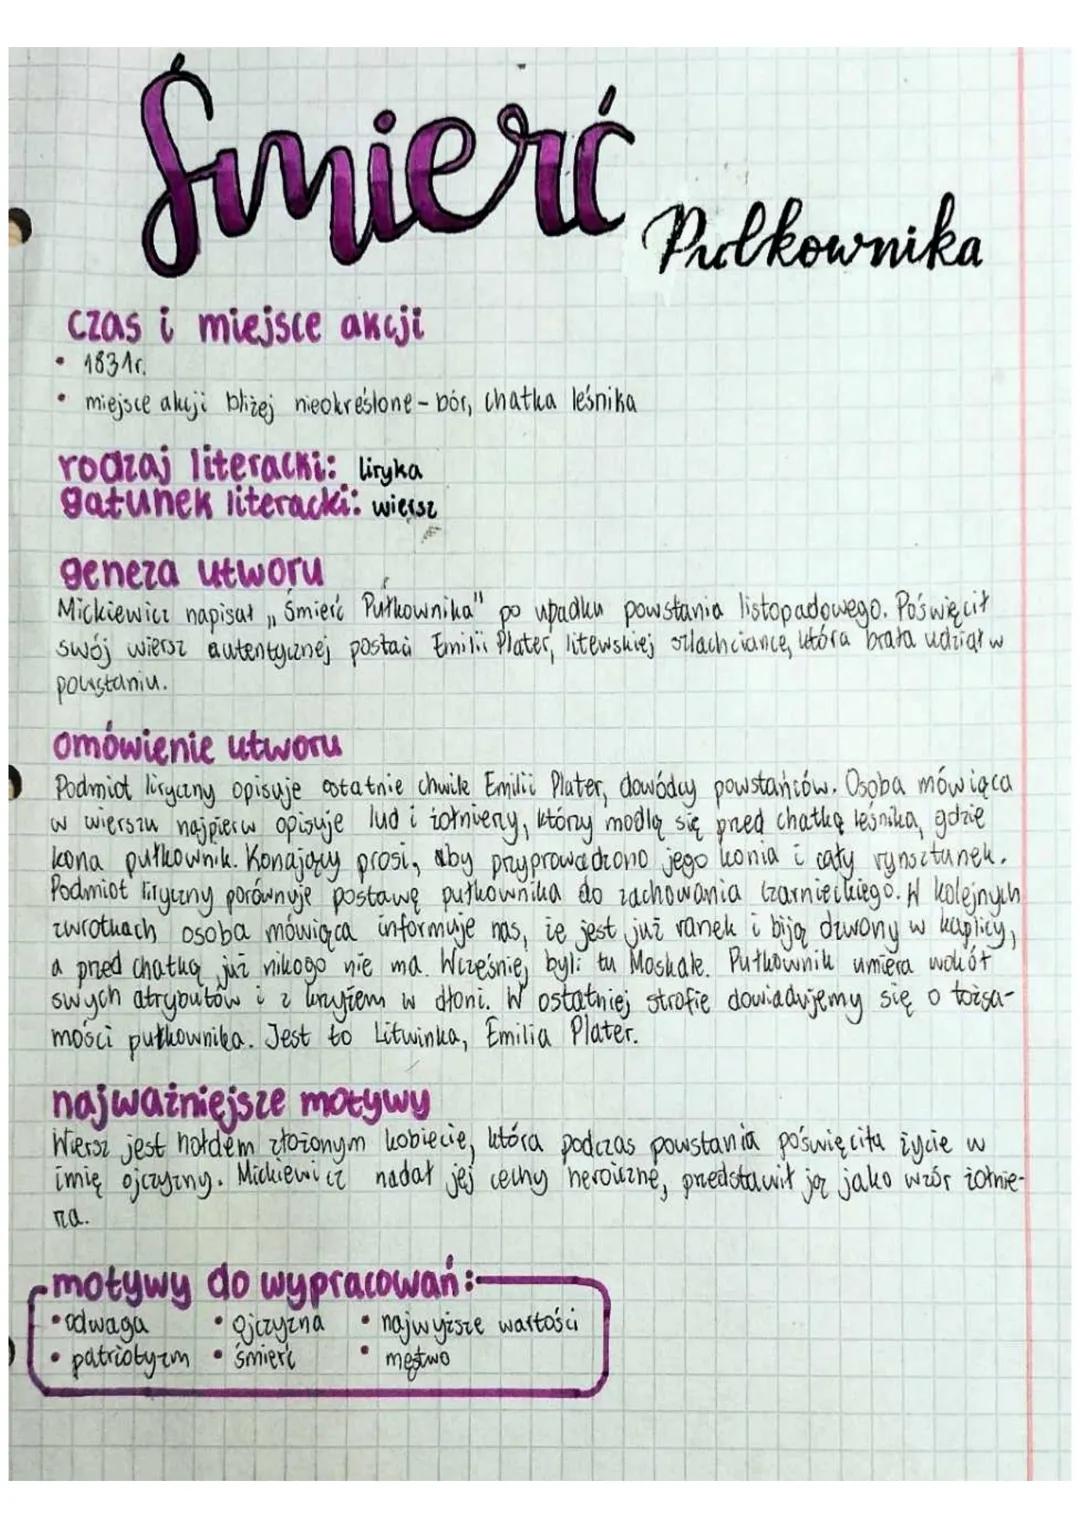 Śmierć
Pułkownika
czas i miejsce akcji
• 1831r.
• miejsce akcji bliżej nieokreślone - bór, chatka leśnika
rodzaj literacki: liryka
gatunek literacki: wiersz
geneza utworu
Mickiewicz napisał „Śmierć Pułkownika" po upadku powstania listopadowego. Poświęcił
swój wiersz autentycznej postaci Emilii Plater, litewskiej szlachciance, która brała udział w
powstaniu.
omówienie utworu
Podmiot liryczny opisuje ostatnie chwile Emilii Plater, dowódcy powstańców. Osoba mówiąca
w wierszu najpierw opisuje lud i żołnierzy, którzy modlą się przed chatką leśnika, gdzie
kona pułkownik. Konający prosi, aby przyprowadzono jego konia i cały rynsztunek.
Podmiot liryczny porównuje postawę pułkownika do zachowania Czarnieckiego. W kolejnych
zwrotkach osoba mówiąca informuje nas, że jest już ranek i biją dzwony w kaplicy,
a przed chatką już nikogo nie ma. Wcześniej byli tu Moskale. Pułkownik umiera wokół
swych atrybutów i z krzyżem w dłoni. W ostatniej strofie dowiadujemy się o tożsa-
mości pułkownika. Jest to Litwinka, Emilia Plater.
najważniejsze motywy
Wiersz jest hołdem złożonym kobiecie, która podczas powstania poświęciła życie w
imię ojczyzny. Mickiewicz nadał jej cechy heroiczne, przedstawił ją jako wzór żołnie-
rza.
motywy do wypracowań:
• odwaga • ojczyzna • najwyższe wartości
• patriotyzm • śmierć • męstwo